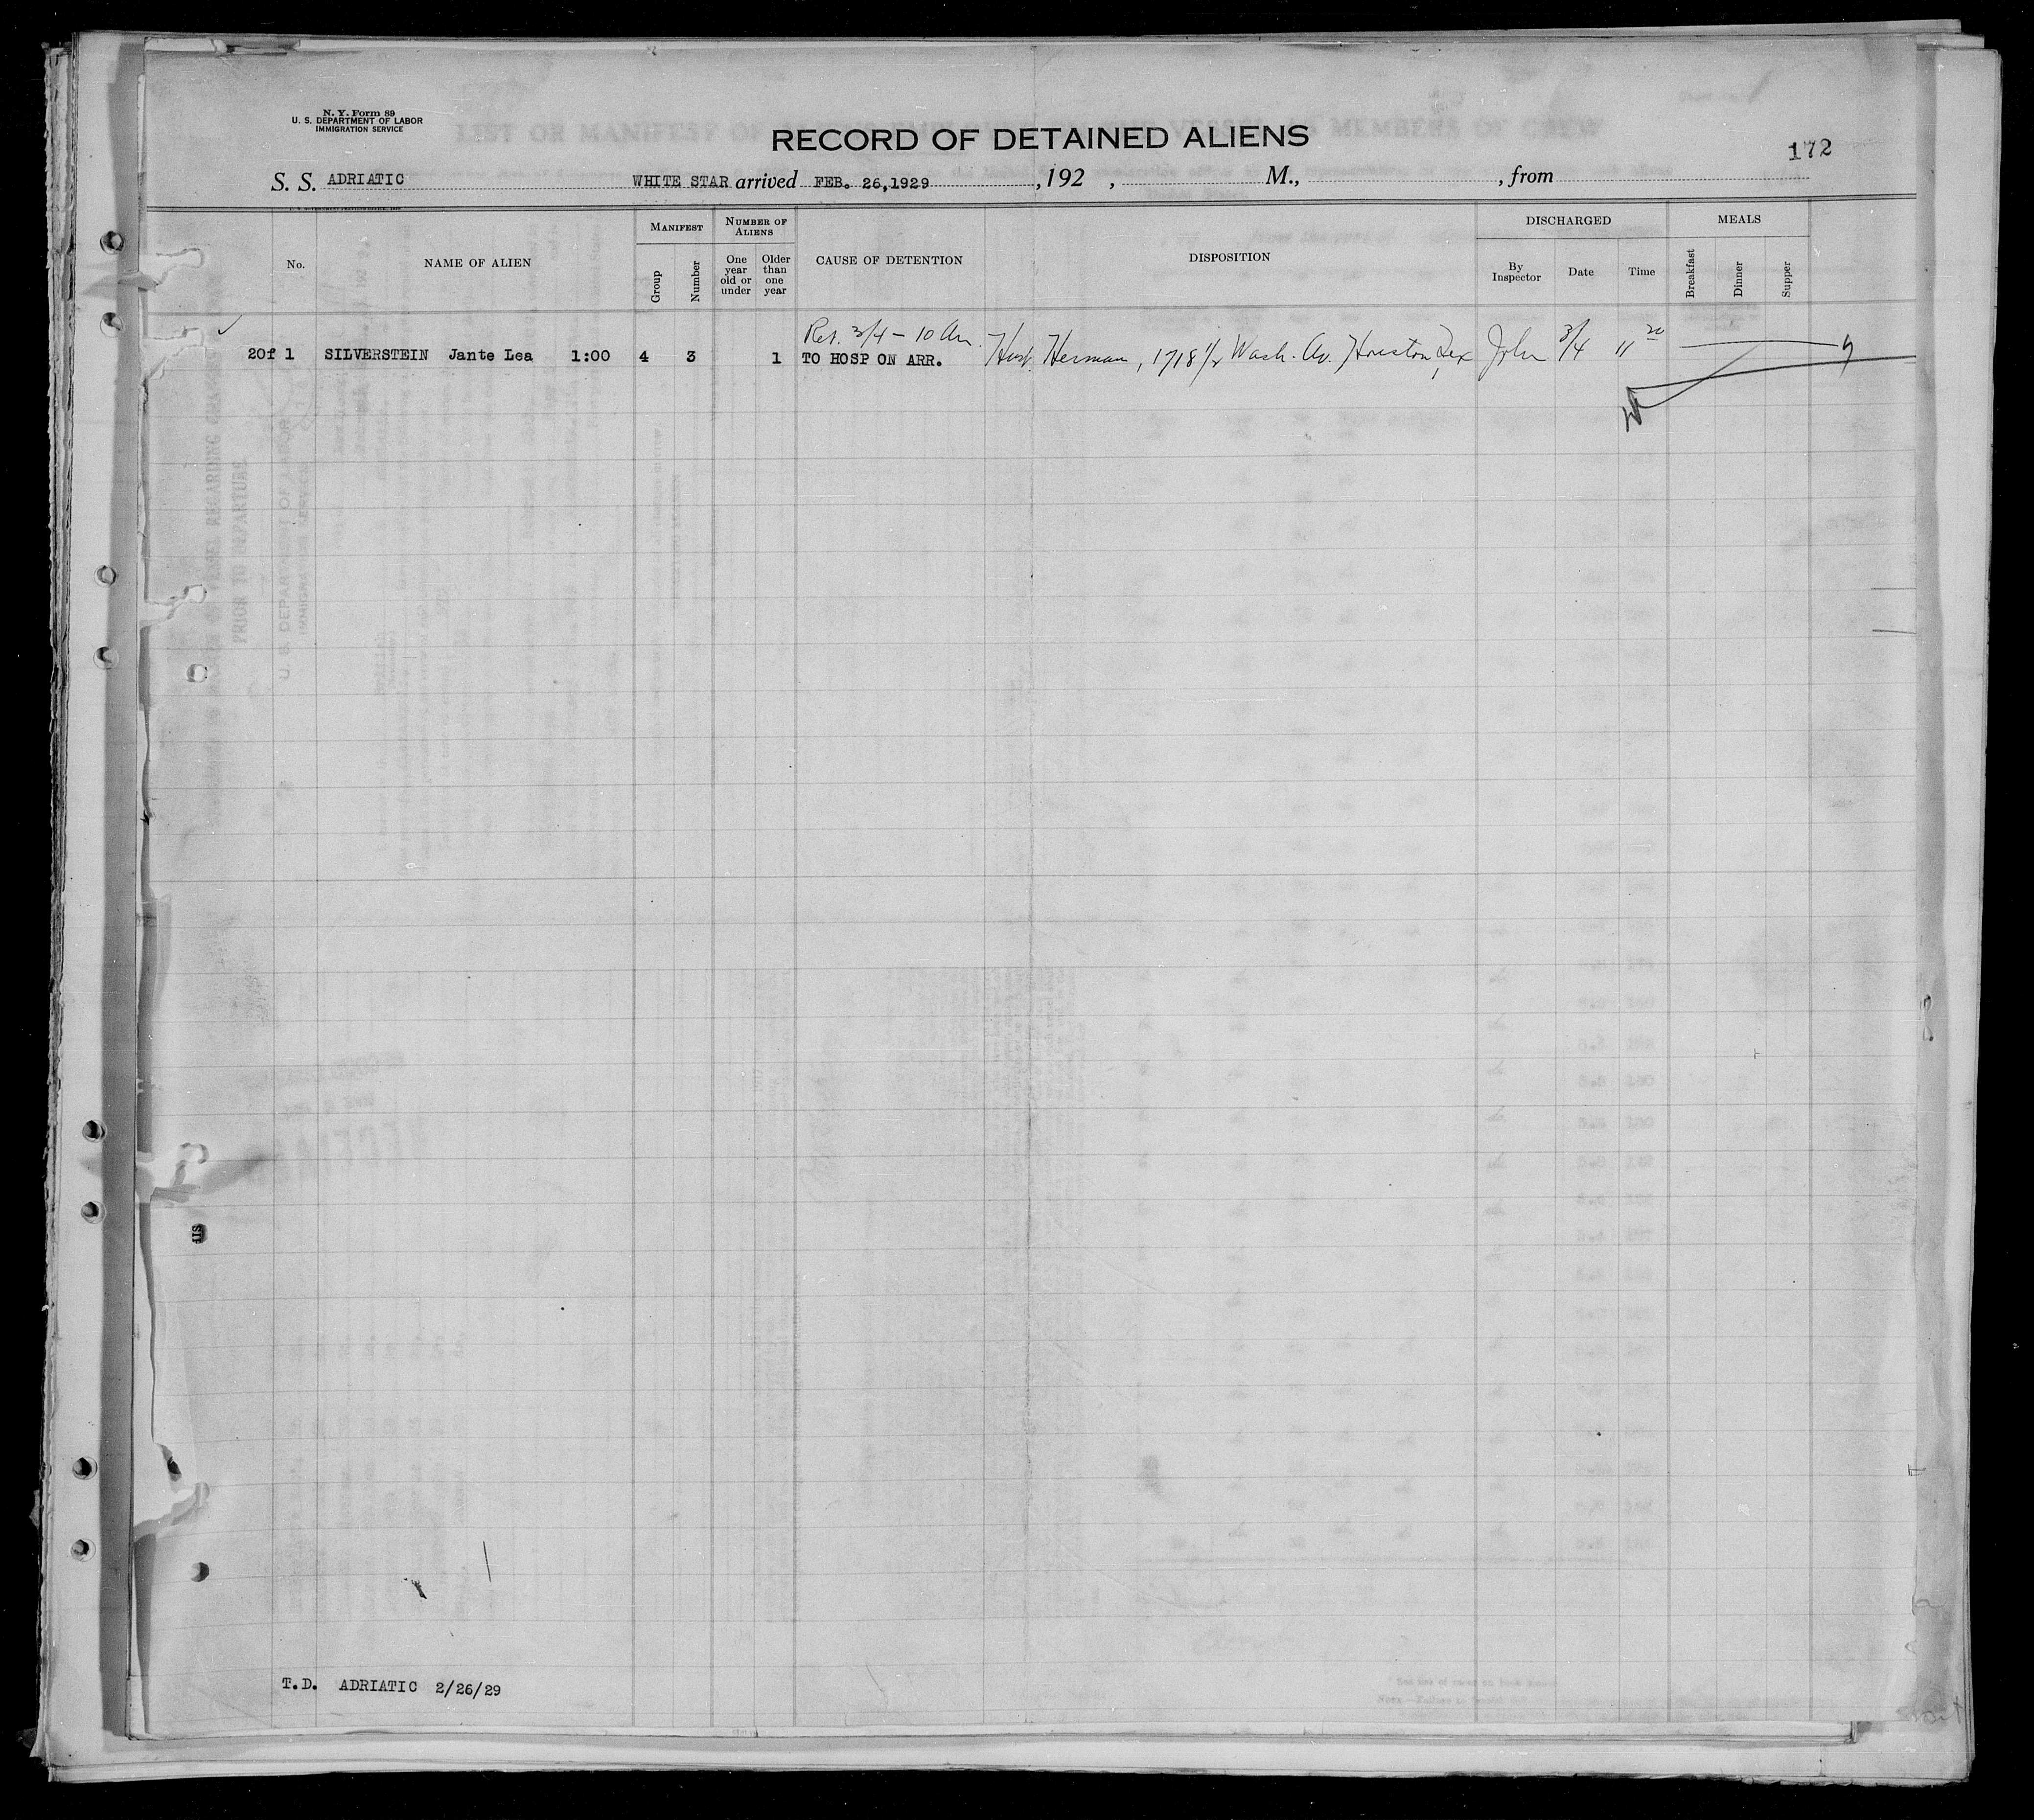 N. Y. Form 89
U. S. DEPARTMENT OF LABOR
IMMIGRATION SERVICE
RECORD OF DETAINED ALIENS
172
S. S. ADRIATIC WHITE STAR arrived FEB. 26,1929 , 192 , M., , from
No. NAME OF ALIEN MANIFEST Group Number NUMBER OF ALIENS One year old or under Older than one year CAUSE OF DETENTION DISPOSITION DISCHARGED By Inspector Date Time MEALS Breakfast Dinner Supper
Ret. 3/4 - 10 am.
20f 1 SILVERSTEIN Jante Lea 1:00 4 3 1 TO HOSP ON ARR. Husb. Herman, 1718 1/2 Wash. Av. Houston, Tex John 3/4 11 20
PRIOR TO DEPARTURE
T.D. ADRIATIC 2/26/29